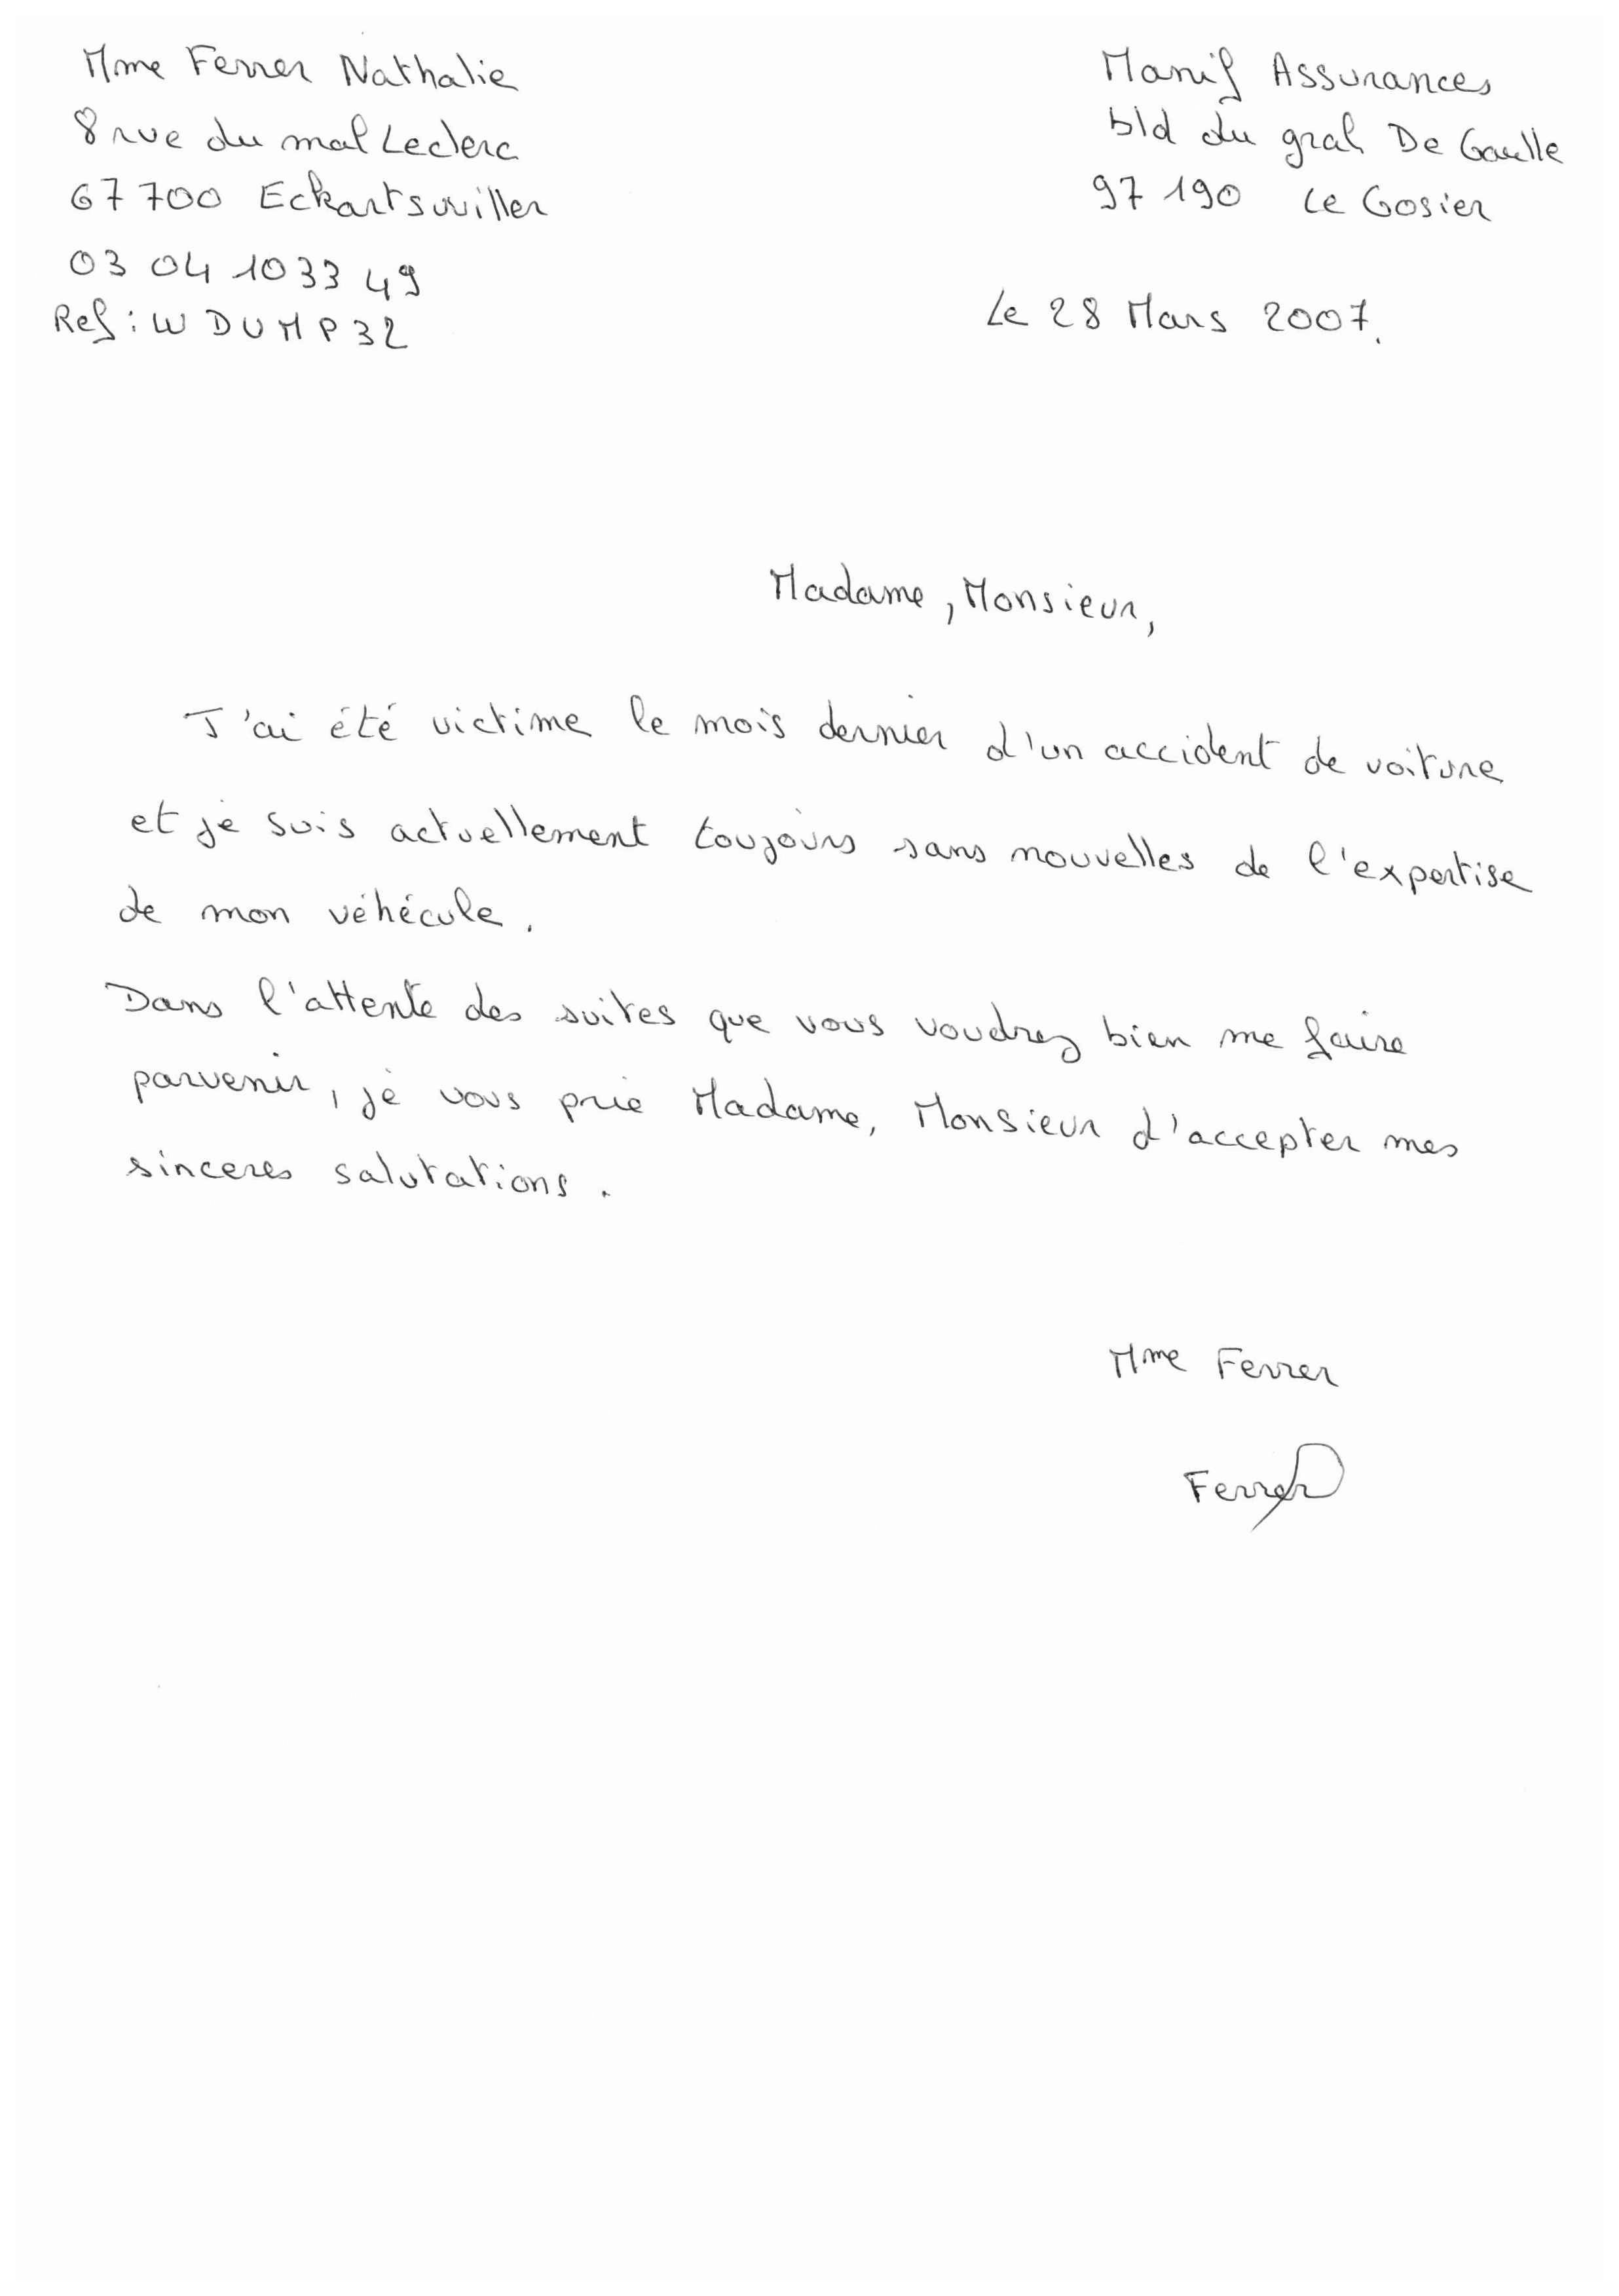 Mme Ferrer Nathalie
8 rue du mal Leclerc
67700 Eckartswiller
03 04 10 33 49
Ref : WDUMP32
Manif Assurances
bld du gral De Gaulle
97 190 Le Gosier
Le 28 Mars 2007.
Madame, Monsieur,
J'ai été victime le mois dernier d'un accident de voiture
et je suis actuellement toujours sans nouvelles de l'expertise
de mon véhécule.
Dans l'attente des suites que vous voudrez bien me faire
parvenir, je vous prie Madame, Monsieur d'accepter mes
sinceres salutations.
Mme Ferrer
Ferrer